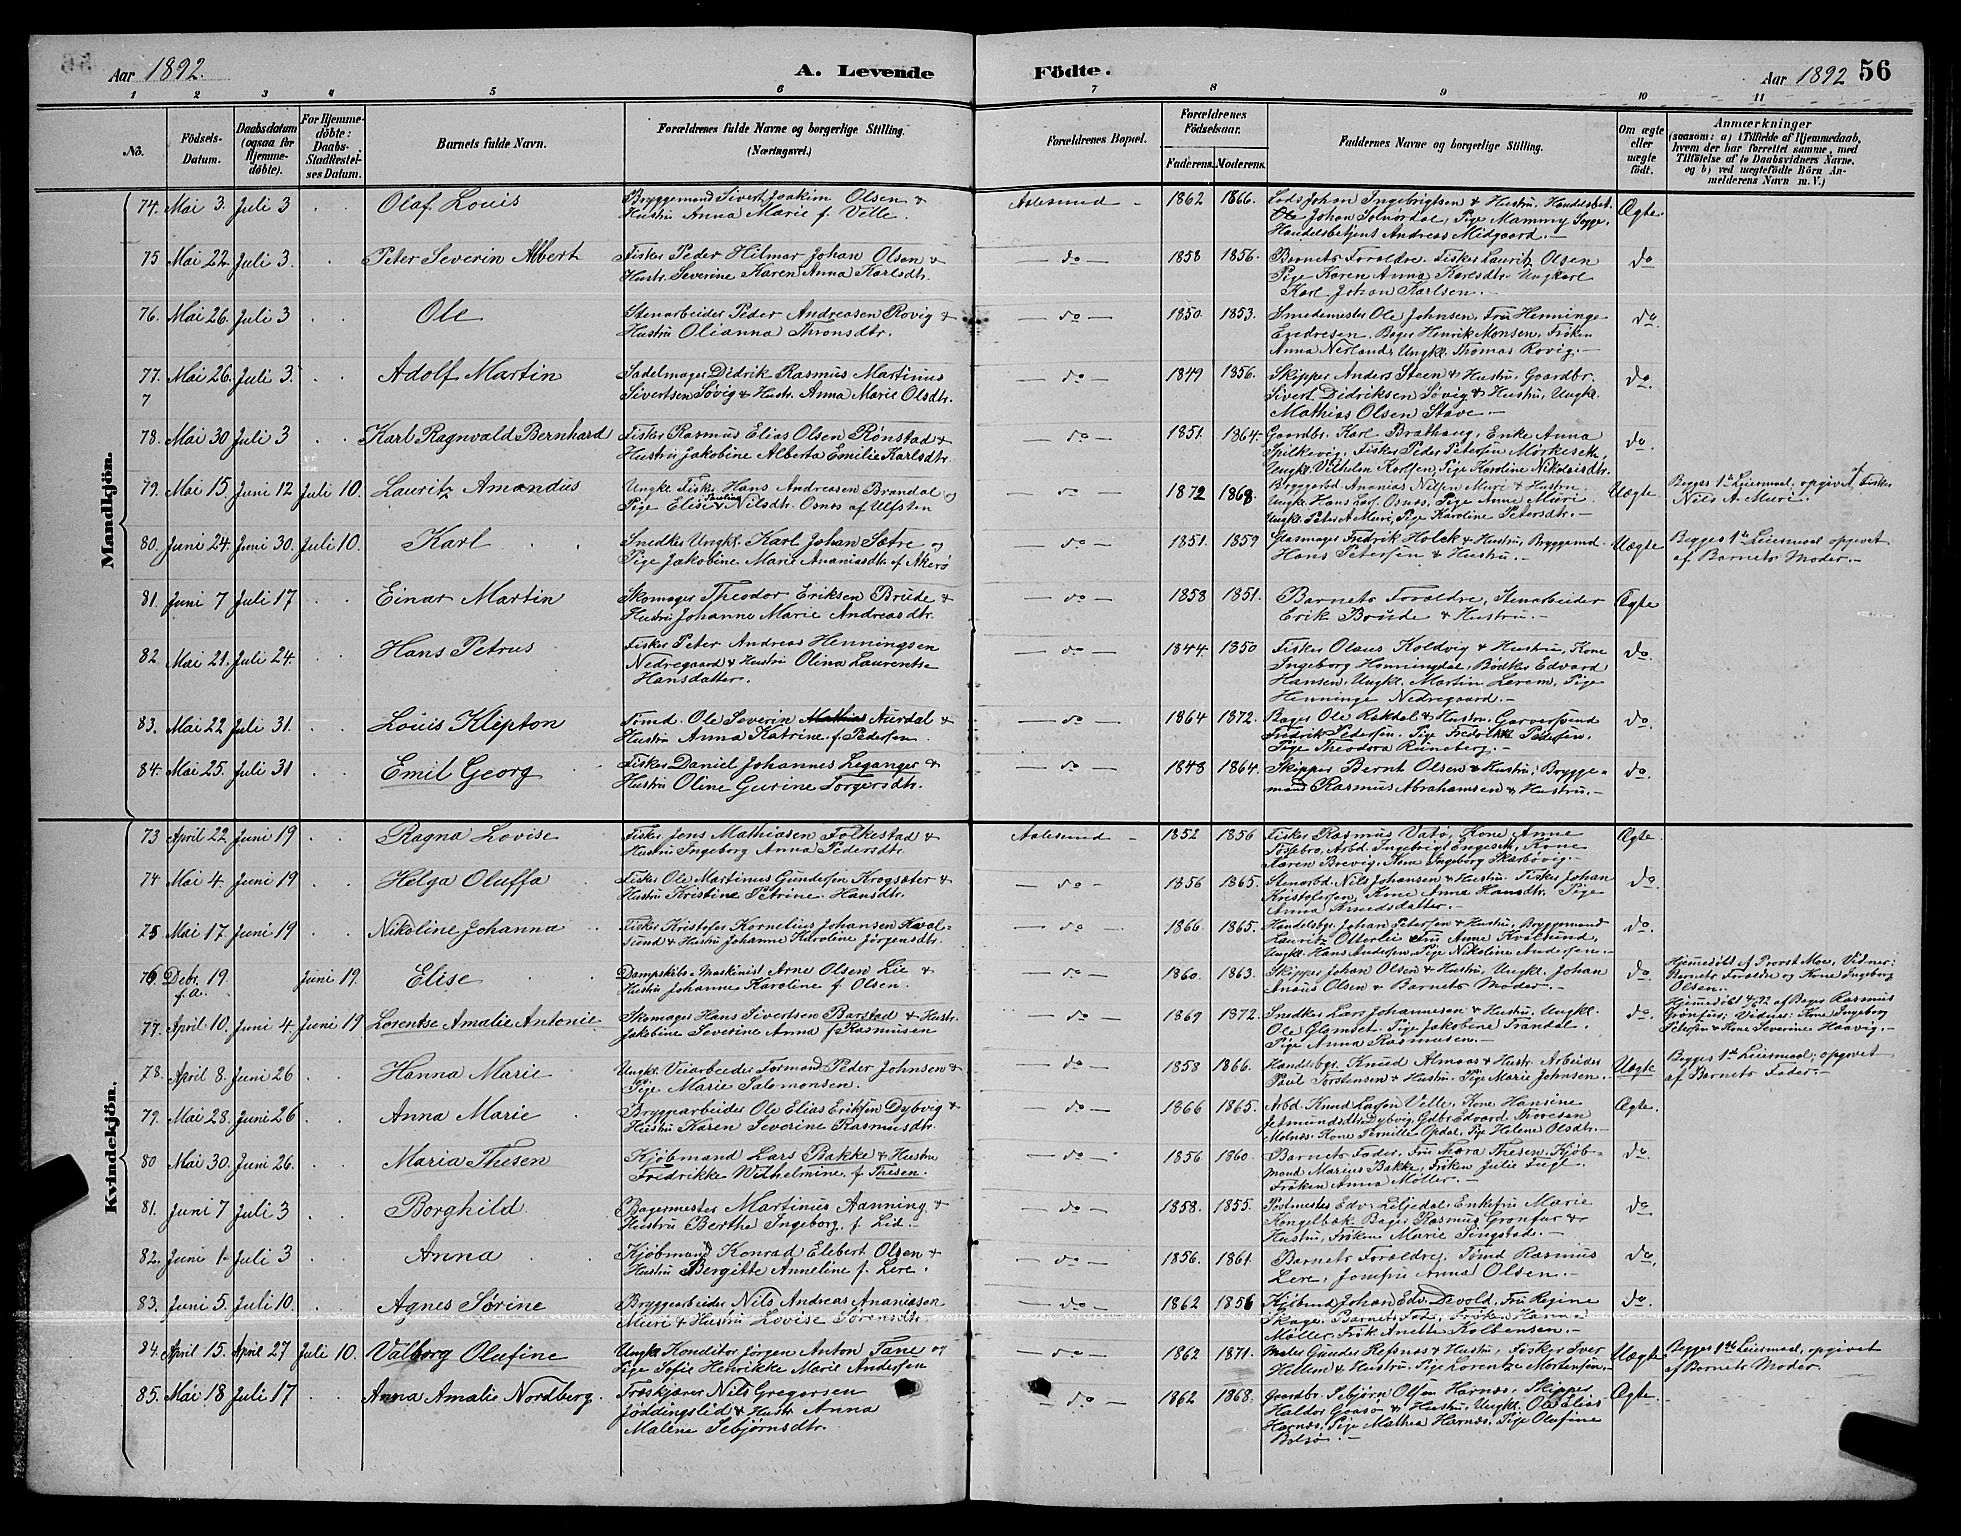 Aar 1892.
A. Levende Födte.
Aar 1892 56
1 2 3 4 5 6 7 8 9 10 11
No. Födsels-Datum. Daabsdatum (ogsaa for Hjemme-döbte). For Hjemme-döbte: Daabs-Stadfæstel-ses Datum. Barnets fulde Navn. Forældrenes fulde Navne og borgerlige Stilling. (Næringsvei.) Forældrenes Bopæl. Forældrenes Födselsaar. Faderens. Moderens. Faddernes Navne og borgerlige Stilling. Om ægte eller uægte födt. Anmærkninger (saasom: a) i Tilfælde af Hjemmedaab, hvem der har forrettet samme, med Tilföielse af to Daabsvidners Navne, og b) ved uægtefödte Börn An-melderens Navn m. V.)
Mandkjön.
74. Mai 3. Juli 3 Olaf Louis Bryggemand Sivert Joakim Olsen & Aalesund 1862 1866. Lods Johan Ingebrigtsen & Hustru, Handelsbet. Ægte
Hustru Anna Marie f. Velle. Johan Solnördal, Pige Mammy Sygge,
Handelsbetjent Andreas Midgaard.
75 Mai 22. Juli 3. Peter Severin Albert Fisker Peder Hilmar Johan Olsen & do 1858 1856. Barnets Forældre, Fisker Lauritz Olsen do
Hustr. Severine Karen Anna Karlsdtr. Pige Karen Anna Karlsdtr. Ungkarl
Karl Johan Karlsen.
76. Mai 26. Juli 3 Ole Stenarbeider Peder Andreasen Rovig & do 1850 1853. Smedemester Ole Johnsen, Fru Henninge do
Hustru Olianna Thronsdtr. Endresen, Bager Henrik Monsen, Frøken
Anna Nerland, Ungkl. Thomas Rovig.
77. Mai 26. Juli 3. Adolf Martin Sadelmager Didrik Rasmus Martinus do 1849 1856. Skipper Anders Steen & Hustru, Gaardbr. do.
7 Sivertsen Søvig & Hustr. Anna Marie Olsdtr. Sivert Didriksen Søvig & Hustru, Ungkl.
Mathias Olsen Stave.
78. Mai 30 Juli 3 Karl Ragnvald Bernhard Fisker Rasmus Elias Olsen Rønstad & do 1851. 1864. Gaardbr. Karl Brathaug, Enke Anna do.
Hustru Jakobine Alberta Emilie Karlsdtr. Spilkevig, Fisker Peder Petersen Mørkeseth,
Ungkl. Vilhelm Karlsen, Pige Karoline Nikolaisdtr.
79. Mai 15. Juni 12 Juli 10. Lauritz Amandus Ungkl. Fisker Hans Andreasen Brandal og do 1872 1868. Bryggearbd Ananias Nilsen Muri & Hustru Uægte Begges 1ste Leiermaal, opgivet af Fisker
Pige Elise Pauline Nilsdtr. Osnes af Ulfsten Ungkl. Hans Larf. Osnes, Pige Anne Muri. Nils A. Muri.
Ungkl. Peter A Muri, Pige Karoline Petersdtr.
80. Juni 24. Juni 30. Juli 10. Karl Snedker Ungkl. Karl Johan Sætre og do 1851. 1859 Glasmager Fredrik Holck & Hustru, Bryggemd. Uægte Begges 1ste Leiermaal opgivet
Pige Jakobine Marie Ananiasdtr. af Akerö Hans Petersen & Hustru. af Barnets Moder.
81. Juni 7 Juli 17 Einar Martin Skomager Theodor Eriksen Brude & do 1858 1851. Barnets Forældre, Stenarbeider Ægte
Hustru Johanne Marie Andreasdtr. Erik Brude & Hustru.
82 Mai 21. Juli 24. Hans Petrus Fisker Peter Andreas Henningsen do 1844. 1850 Fisker Olaus Koldvig & Hustru, Kone do.
Nedregaard & Hustru Olina Laurentse Ingeborg Honningdal, Bødker Edvard
Hansdatter. Hansen, Ungkl. Martin Lerem, Pige
Henninge Nedregaard.
83. Mai 22 Juli 31. Louis Klepton Tømd. Ole Severin Mathias Aurdal & do 1864 1872. Bager Ole Rakdal & Hustru, Garversvend do.
Hustru Anna Katrine f. Pedersen. Fredrik Pedersen, Pige Fredrikke Pedersen,
Pige Theodora Runeberg.
84. Mai 25. Juli 31 Emil Georg Fisker Daniel Johannes Leganger & do 1848 1864. Skipper Bernt Olsen & Hustru, Brygge- do.
Hustru Oline Gurine Torgersdtr. mand Rasmus Abrahamsen & Hustru.
Kvindekjön.
73 April 22 Juni 19 Ragna Lovise Fisker Jens Mathiasen Folkestad & Aalesund 1852 1856 Fisker Rasmus Vatö, Kone Anne Ægte
Hustru Ingeborg Anna Pedersdtr. Tosebro, Arbd. Ingebrigt Engeseth, Kone
Karen Brevig, Kone Ingeborg Skarbövig.
74 Mai 4. Juni 19 Helga Oluffa Fisker Ole Martinus Gundersen Krogsæter & do 1856 1865. Stenarbd. Nils Johansen & Hustru, Fisker Johan do.
Hustru Kristine Petrine Hansdtr. Kristofersen, Kone Anna Hansdtr. Pige
Anna Knudsdatter.
75 Mai 17 Juni 19 Nikoline Johanna Fisker Kristofer Kornelius Johansen Kval- do 1866. 1865. Handelsbgr. Johan Petersen & Hustru, Bryggemand do.
sund & Hustru Johanne Karoline Jørgensdtr. Lauritz Otterlei, Fru Anne Kvalsund,
Ungkl. Hans Andersen, Pige Nikoline Andersen.
76 Debr. 19. Juni 19. Elise Dampskibs-Maskinist Arne Olsen Lie & do 1860. 1863. Skipper Johan Olsen & Hustru, Ungkl. Johan do Hjemedöbt af Provst Moe, Vidner:
f.a. Hustru Johanne Karoline f. Olsen. Anöus Olsen & Barnets Moder. Barnets Forældre og Kone Ingeborg
Olsen.
77. April 10. Juni 4. Juni 19 Lorentse Amalie Antonie Skomager Hans Sivertsen Barstad & Hustr. do 1869 1872. Snedker Lars Johannesen & Hustru, Ungkl. do. Hjemedöbt 4/6 92 af Bager Rasmus
Jakobine Severine Anna f. Rasmusen Ole Glomset, Pige Jakobine Trandal, Grönfur, Vidner: Kone Ingeborg
Pige Anna Rasmusen. Petersen & Kone Severine Haavig.
78. April 8. Juni 26 Hanna Marie Ungkl. Veiarbeider Formand Peder Johnsen & do 1858 1866. Handelsbgr. Knud Almaas & Hustr. Arbeider Uægte Begges 1ste Leiermaal, opgivet
Pige Marie Salomonsen. Paul Torstensen & Hustru, Pige Marie Johnsen. af Barnets Fader.
79. Mai 28. Juni 26 Anna Marie Bryggearbeider Ole Elias Eriksen Dybvig & do 1866 1865. Arbd. Knud Larsen Velle, Kone Hansine Ægte.
Hustru Karen Severine Rasmusdtr. Jetmundsdtr Dybvig, Gdbr. Edvard Thoresen
Molnes, Kone Pernille Opdal, Pige Helene Olsdtr.
80 Mai 30. Juni 26. Maria Thesen Kjøbmand Lars Bakke & Hustru do 1856 1860. Barnets Fader, Fru Thora Thesen, Kjøb- do
Fredrikke Wilhelmine f. Thesen. mand Marius Bakke, Frøken Julie Fugl.
Frøken Anna Møller.
81. Juni 7 Juli 3 Borghild Bagermester Martinus Aanning & do 1858. 1855. Postmester Edv. Liljedal, Enkefru Marie do
Hustru Berthe Ingeborg f. Lid. Kongelbæk, Bager Rasmus Grönfur &
Hustru, Frøken Marie Singstad.
82. Juni 1. Juli 3 Anna Kjøbmand Konrad Elebert Olsen & do 1856. 1861. Barnets Forældre, Tømd Rasmus do.
Hustru Bergitte Anneline f. Lere. Lere, Jomfru Anna Olsen.
83. Juni 5. Juli 10. Agnes Sørine Bryggearbeider Nils Andreas Ananiasen do 1862 1856 Kjøbmd Johan Edv. Devold, Fru Regine do.
Muri & Hustru Lovise Sørensdtr. Skage, Barnets Fad., Frøken Hanna
Møller, Frøk. Anette Kolbensen.
84. April 15. April 27 Juli 10. Valborg Olufine Ungkl. Konditor Jørgen Anton Tane og do 1862 1871. Maler Gunder Refsnæs & Hustru, Fisker Iver Uægte Begges 1ste Leiermaal, opgivet
Pige Sofie Henrikke Marie Andersen Hellem & Hustru, Pige Lorentze Mortensen. af Barnets Moder
85. Mai 18 Juli 17 Anna Amalie Nordberg. Træskjærer Nils Gregorsen do 1862 1868. Gaardbr. Sebjørn Olsen Harnæs, Skipper Ægte.
Jøddingslid & Hustr. Anna Haldor Gaasø & Hustru, Ungkl. Ole Elias
Malene Sebjørnsdtr. Harnæs, Pige Mathea Harnæs, Pige Olufine
Bolsø.